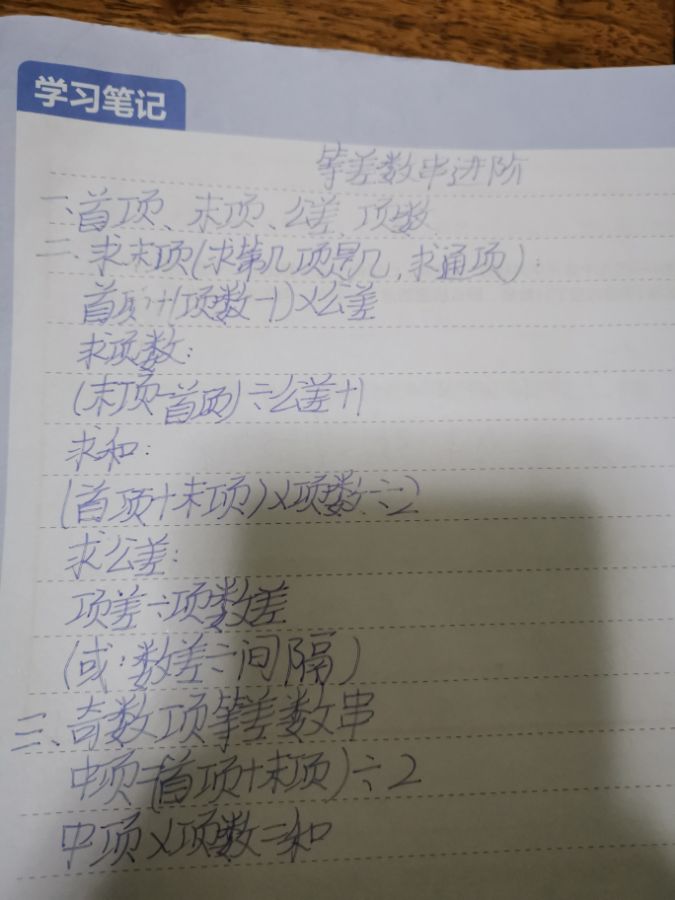 学习笔记
等差数串进阶
一、首项、末项、公差、项数
二、求末项(求第几项是几,求通项):
首项+(项数-1)×公差
求项数:
(末项-首项)÷公差+1
求和:
(首项+末项)×项数÷2
求公差:
项差÷项数差
(或:数差÷间隔)
三、奇数项等差数串
中项=(首项+末项)÷2
中项×项数=和